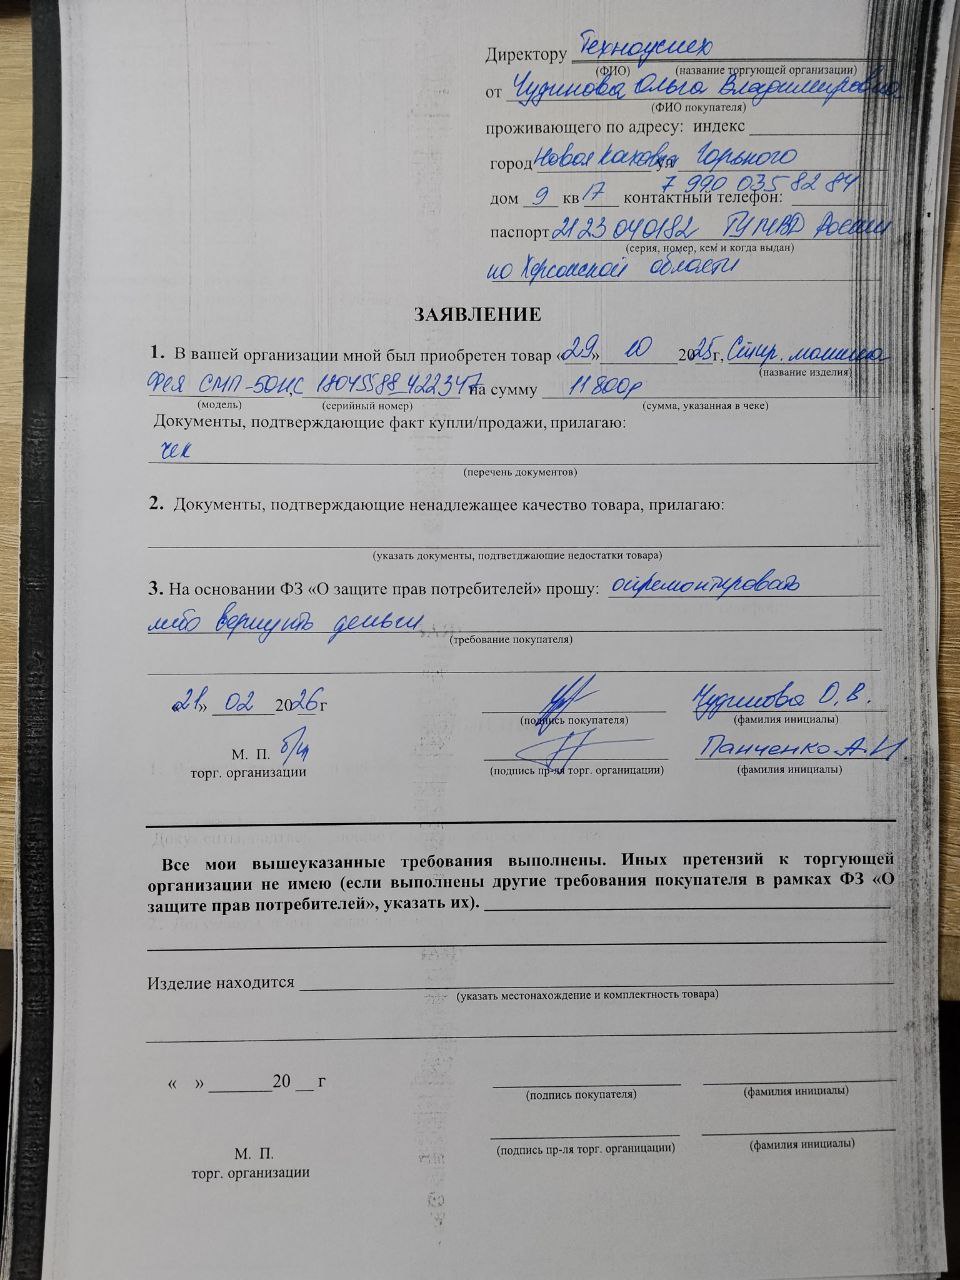 Директору Техноуспех
(ФИО) (название торгующей организации)
от Чудинова Ольга Владимировна
(ФИО покупателя)
проживающего по адресу: индекс
город Новая Каховка ул Горького
7 990 035 82 84
дом 9 кв 17 контактный телефон:
паспорт 2123 040182 ГУ МВД России
(серия, номер, кем и когда выдан)
по Херсонской области
ЗАЯВЛЕНИЕ
1. В вашей организации мной был приобретен товар «29» 10 2025г, Стир. машина
(название изделия)
Фея СМП-50Н, С 18045588422347 на сумму 11800р
(модель) (серийный номер) (сумма, указанная в чеке)
Документы, подтверждающие факт купли/продажи, прилагаю:
чек
(перечень документов)
2. Документы, подтверждающие ненадлежащее качество товара, прилагаю:
(указать документы, подтветджающие недостатки товара)
3. На основании ФЗ «О защите прав потребителей» прошу: отремонтировать
либо вернуть деньги
(требование покупателя)
«21» 02 2026 г Чудинова О. В.
(подпись покупателя) (фамилия инициалы)
М. П. б/п Панченко А. И.
торг. организации (подпись пр-ля торг. органицации) (фамилия инициалы)
Все мои вышеуказанные требования выполнены. Иных претензий к торгующей
организации не имею (если выполнены другие требования покупателя в рамках ФЗ «О
защите прав потребителей», указать их).
Изделие находится
(указать местонахождение и комплектность товара)
« » 20 г
(подпись покупателя) (фамилия инициалы)
М. П.
торг. организации (подпись пр-ля торг. органицации) (фамилия инициалы)